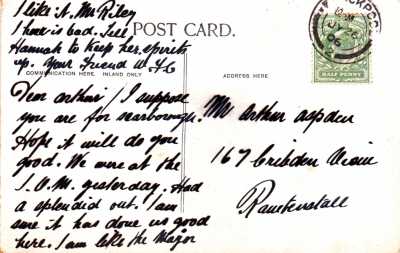 I like it, Mr Riley
POST CARD.
here is bad. Tell
Hannah to keep her spirits
up. Your Friend
COMMUNICATION HERE. INLAND ONLY
ADDRESS HERE.
HALF PENNY
Dear arthur / I suppose
you are for scarborough.
Hope it will do you
good. We were at the
I.O.M. yesterday. Had
a splendid out. I am
sure it has done us good
here. I am like the Major
Mr arthur aspden
167 Cribden View
Rawtenstall